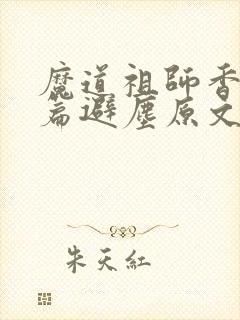 魔道祖師香
篇避塵原文
朱天紅